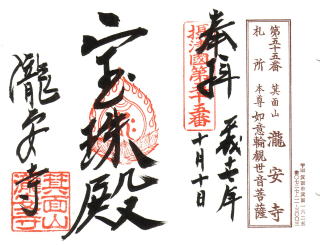 奉拝
平成十七年
十月十日
摂津國第五十五番
宝珠殿
瀧安寺
箕面山
瀧安寺
第五十五番 箕面山
札所 瀧安寺
本尊 如意輪観世音菩薩